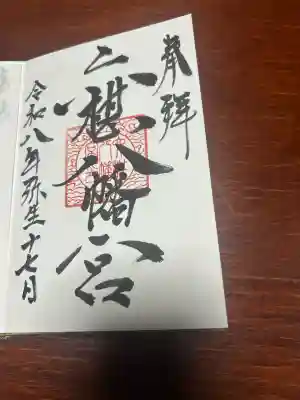 奉拝
六椹八幡宮
令和八年弥生十七日